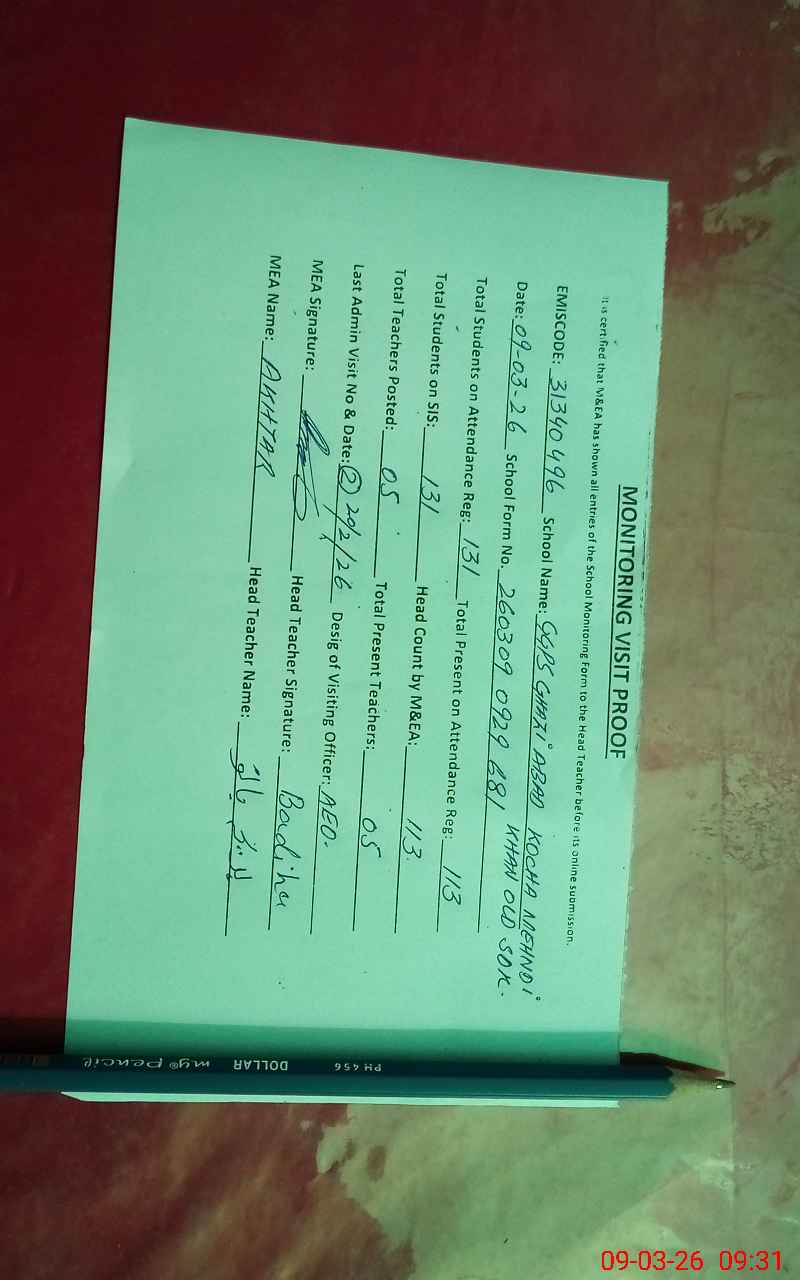 MONITORING VISIT PROOF
It is certified that M&EA has shown all entries of the School Monitoring Form to the Head Teacher before its online submission.
EMISCODE: 31340496 School Name: GGPS GHAZI ABAD KOCHA MEHNDI
KHAN OLD SDK.
Date: 09-03-26 School Form No. 260309 0929 681
Total Students on Attendance Reg: 131 Total Present on Attendance Reg: 113
Total Students on SIS: 131 Head Count by M&EA: 113
Total Teachers Posted: 05 Total Present Teachers: 05
Last Admin Visit No & Date: (2) 20/2/26 Desig of Visiting Officer: AEO.
MEA Signature: Head Teacher Signature: Badiha
MEA Name: AKHTAR Head Teacher Name:
my pencil DOLLAR PH 456
09-03-26 09:31